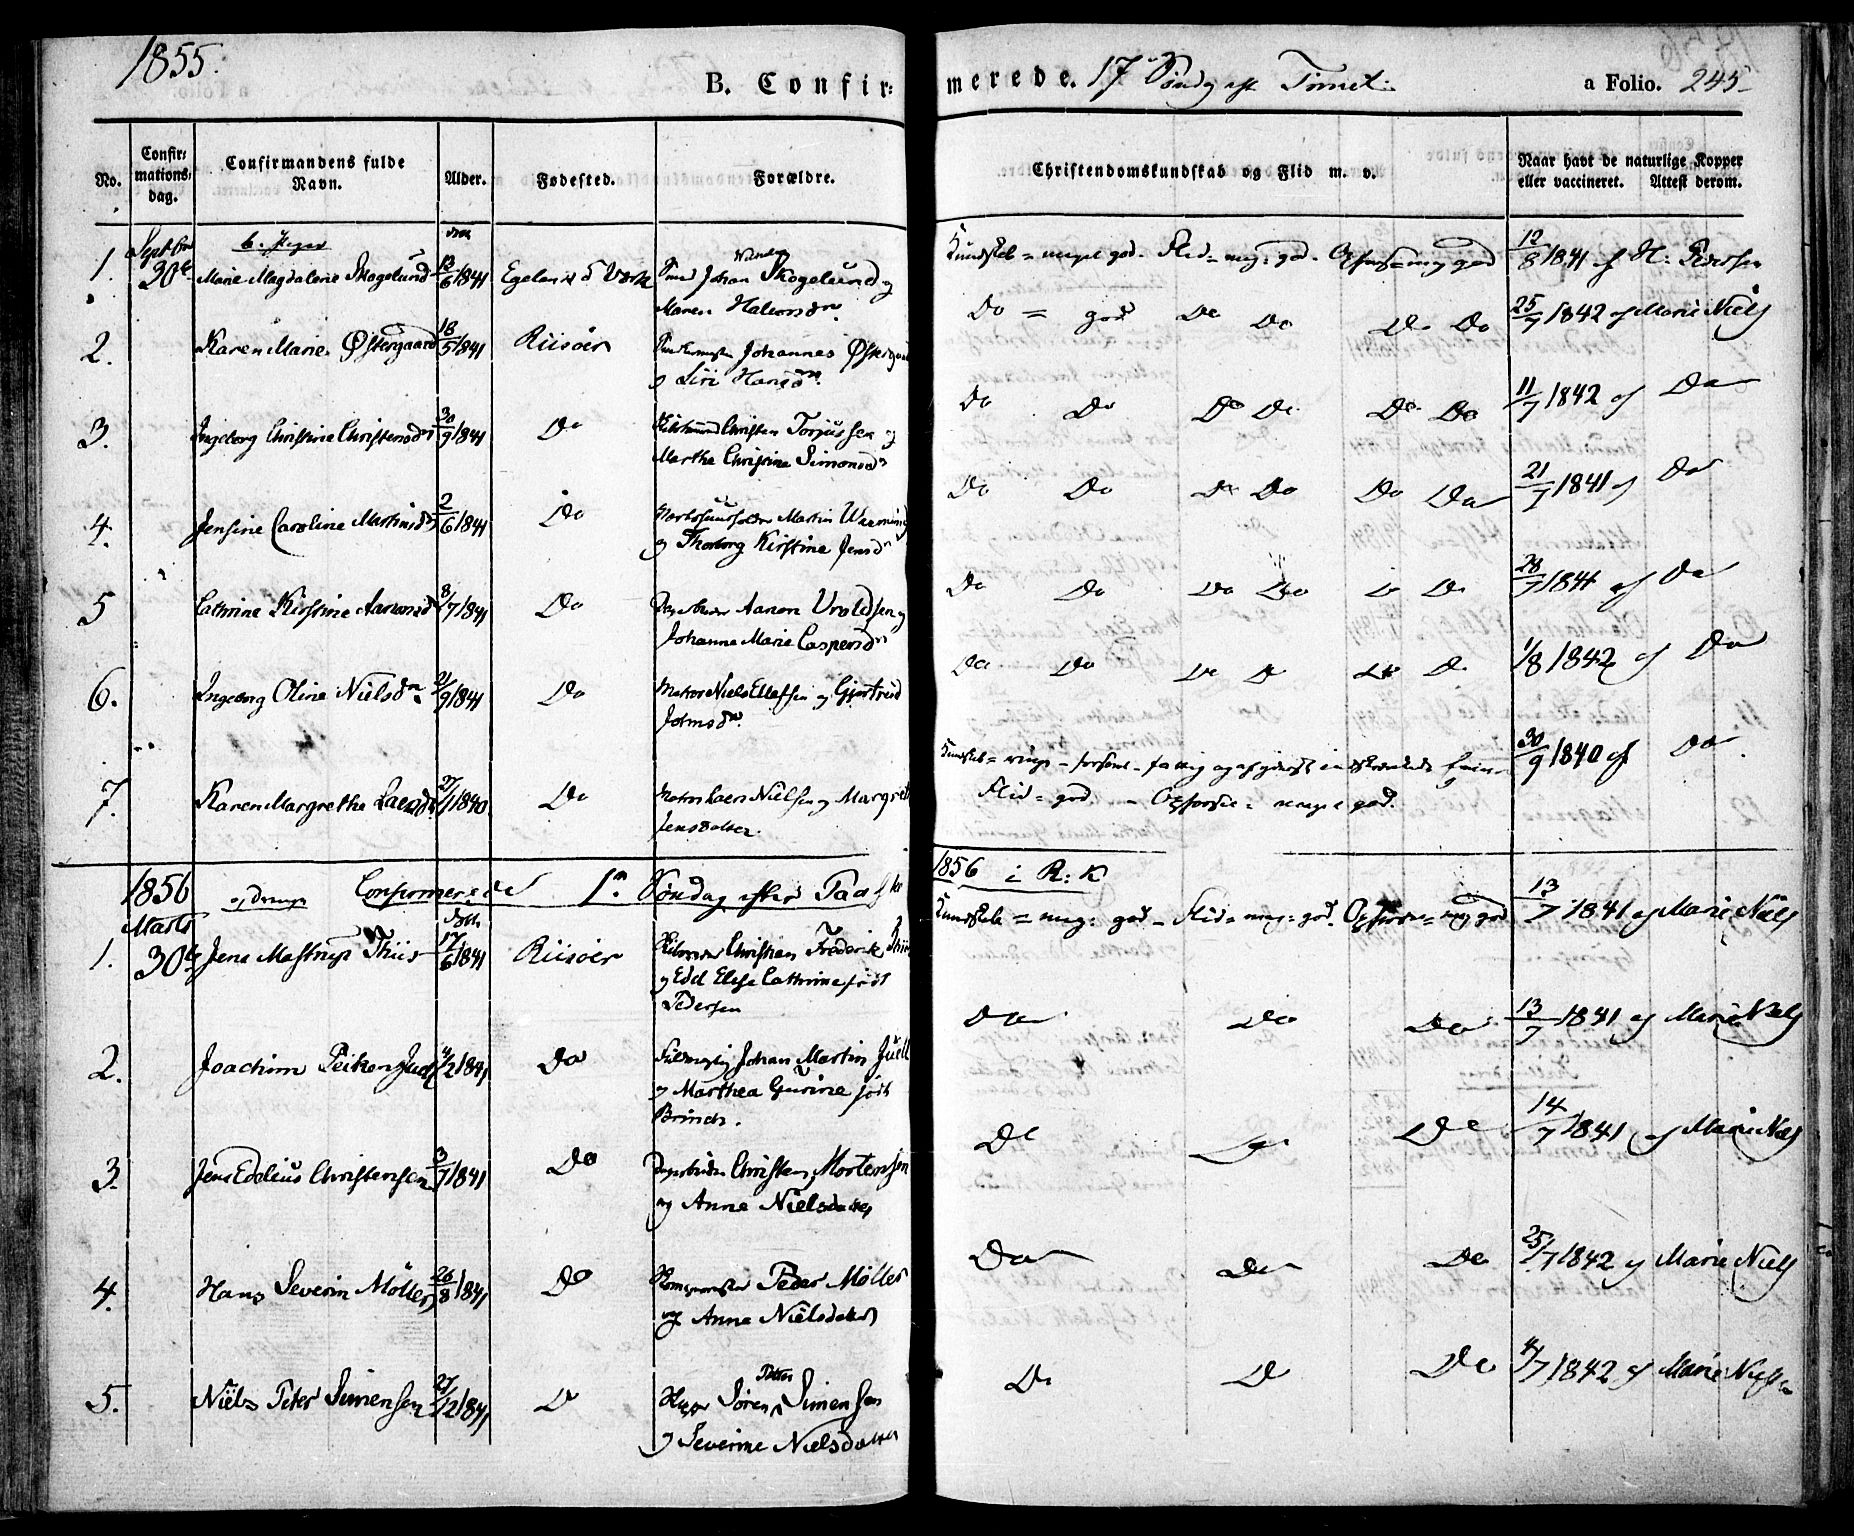 1855.
B. Confir-
merede. 17 Søndag eft Trinit:
a Folio. 245
No.
Confir-
mations-
dag.
Confirmandens fulde
Navn.
Alder.
Fødested.
Forældre.
Christendomskundskab og Flid m. v.
Naar havt de naturlige Kopper
eller vaccineret. Attest derom.
Septbr b. Piger
1. 30te Marie Magdalene Skogelund 13/6 1841 Egelands Værk Johan Skogelund og
Maren Halvorsdr.
Kundskab = meget god. Flid = meg: god. Opførs = meg god 12/8 1841 af H:
2. Karen Marie Østergaard 18/5 1841 Riisöer Johannes Østergaard
og Siri Hansdr.
Do = god Do Do Do Do 25/7 1842 af Marie Niels
3. Ingeborg Christine Christensdr 30/9 1841 Do Christen Torjussen og
Marthe Christine Simonsdr
Do Do Do Do Do Do 11/7 1842 af Do
4. Jensine Caroline Martinsdr 2/6 1841 Do Martin
og Thorborg Kirstine Jensdr
Do Do Do Do Do Do 21/7 1841 af Do
5 Cathrine Kirstine Aanonsd 8/7 1841 Do Aanon Uvoldsen og
Johanne Marie Caspersdr
Do Do Do Do Do Do 28/7 1841 af Do
6. Ingeborg Oline Nielsdr. 21/9 1841 Do Matros Niels Ellefsen og Gjertrud
Johnsdr.
Do Do Do Do Do Do 1/8 1842 af Do
7. Karen Margrethe Larsdr. 27/1 1840 Do Matros Lars Nielsen og Margret
Jensdatter.
Kundskab =
Flid = god. - Opførsel = meget god.
30/9 1840 af Do
1856 Confirmerede 1n Søndag efter Paaske
1856 i R: K
Marts
1. 30te Jens Mastrup Thiis 17/6 1841 Riisöer Christian Frederik Thiis
og Edel Elise Cathrine født
Pedersen
Kundskab = meg: god - Flid = meg: god. Opførs = meg god 13/7 1841 af Marie Niels
2. Joachim Juell 4/2 1841 Do Johan Martin Juell
og Marthea Gurine født
Brinch.
Do Do Do 13/7 1841 af Marie Niels
3. Jens Edelius Christensen 3/7 1841 Do Christen Mortensen
og Anne Nielsdatter
Do Do Do 14/7 1841 af Marie Niels
4. Hans Severin Möller 26/8 1841 Do Peder Möller
og Anne Nielsdatter
Do Do Do 25/7 1842 af Marie Niels
5. Niels Peter Simensen 27/2 1841 Do Søren Peter Simensen
og Severine Nielsdatter
Do Do Do 4/7 1842 af Marie Niels